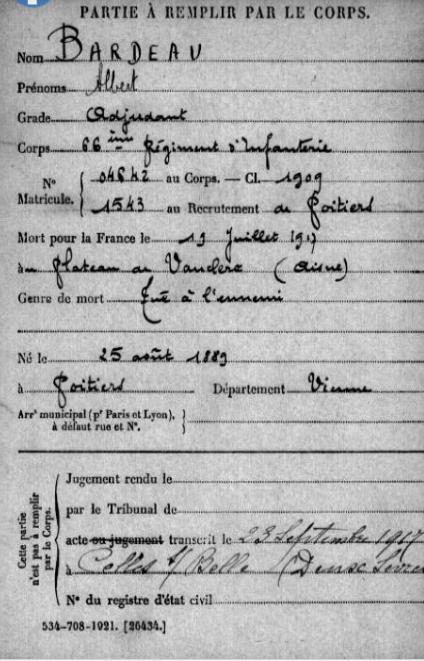 PARTIE À REMPLIR PAR LE CORPS.
Nom BARDEAU
Prénoms Albert
Grade Adjudant
Corps 66 ème Régiment d'Infanterie
No Matricule. { 04642 au Corps. — Cl. 1909
1543 au Recrutement de Poitiers
Mort pour la France le 19 Juillet 1917
au plateau de Vauclerc (Aisne)
Genre de mort Tué à l'ennemi
Né le 25 août 1889
à Poitiers Département Vienne
Arrt municipal (pr Paris et Lyon), }
à défaut rue et No.
Cette partie n'est pas à remplir par le Corps.
Jugement rendu le
par le Tribunal de
acte ou jugement transcrit le 23 Septembre 1917
à Celles s/ Belle (Deux Sèvres
No du registre d'état civil
534-708-1921. [26434.]